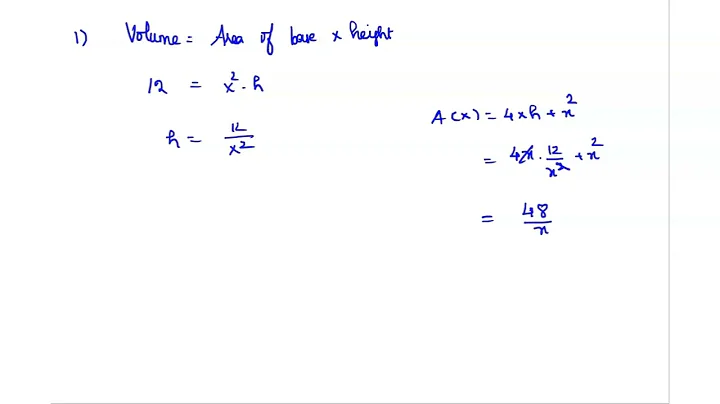 1) Volume = Area of base x height
12 = x². h
h = 12/x²
A(x) = 4xh + x²
= 4x. 12/x² + x²
= 48/x